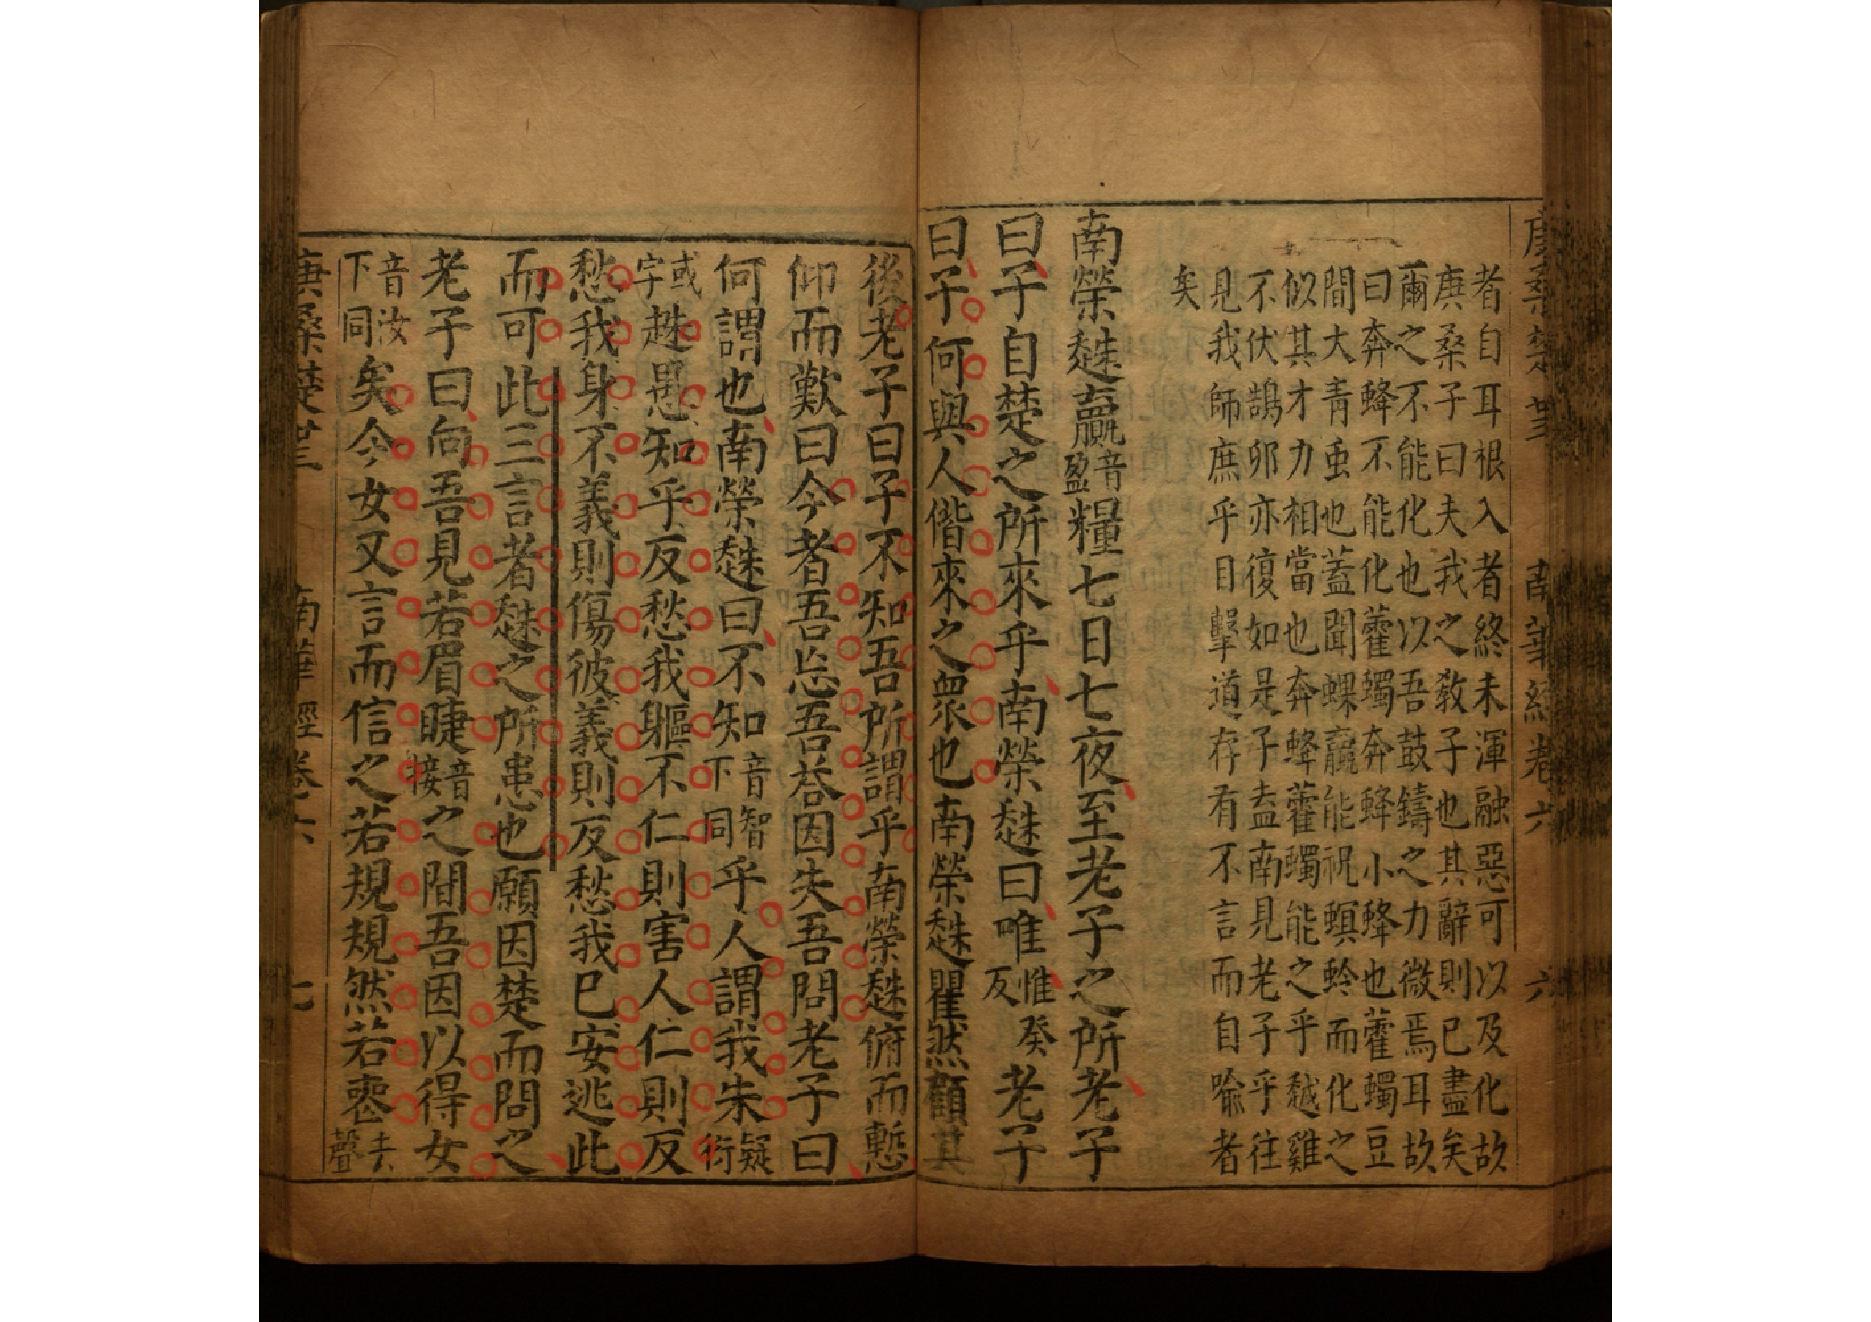 者自耳根入者終未渾融惡可以及化故
庚桑子曰夫我之教子也其辭則已盡矣
爾之不能化也以吾鼓鑄之力微焉耳故
曰奔蜂不能化藿蠋奔蜂小蜂也藿蠋豆
間大青虫也蓋聞蜾蠃能祝螟蛉而化之
似其才力相當也奔蜂藿蠋能之乎越雞
不伏鵠卵亦復如是子盍南見老子乎往
見我師庶乎目擊道存有不言而自喻者
矣
南榮趎贏音盈糧七日七夜至老子之所老子
曰子自楚之所來乎南榮趎曰唯惟癸反老子
曰子何與人偕來之衆也南榮趎瞿然顧其
後老子曰子不知吾所謂乎南榮趎俯而慙
仰而歎曰今者吾忘吾荅因失吾問老子曰
何謂也南榮趎曰不知音智下同乎人謂我朱疑衍
或字趎愚知乎反愁我軀不仁則害人仁則反
愁我身不義則傷彼義則反愁我已安逃此
而可此三言者趎之所患也願因楚而問之
老子曰向吾見若眉睫音接之間吾因以得女
音汝下同矣今女又言而信之若規規然若喪去聲
庚桑楚廿三 南華經卷六 七